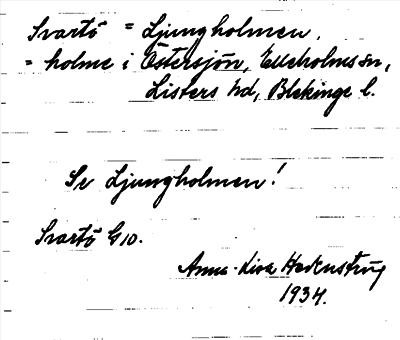 Svartö = Ljungholmen,
= holme i Östersjön, Elleholms sn,
Listers hd, Blekinge l.
Se Ljungholmen!
Svartö G10.
Anna-Lisa Hedenstrüg
1934.